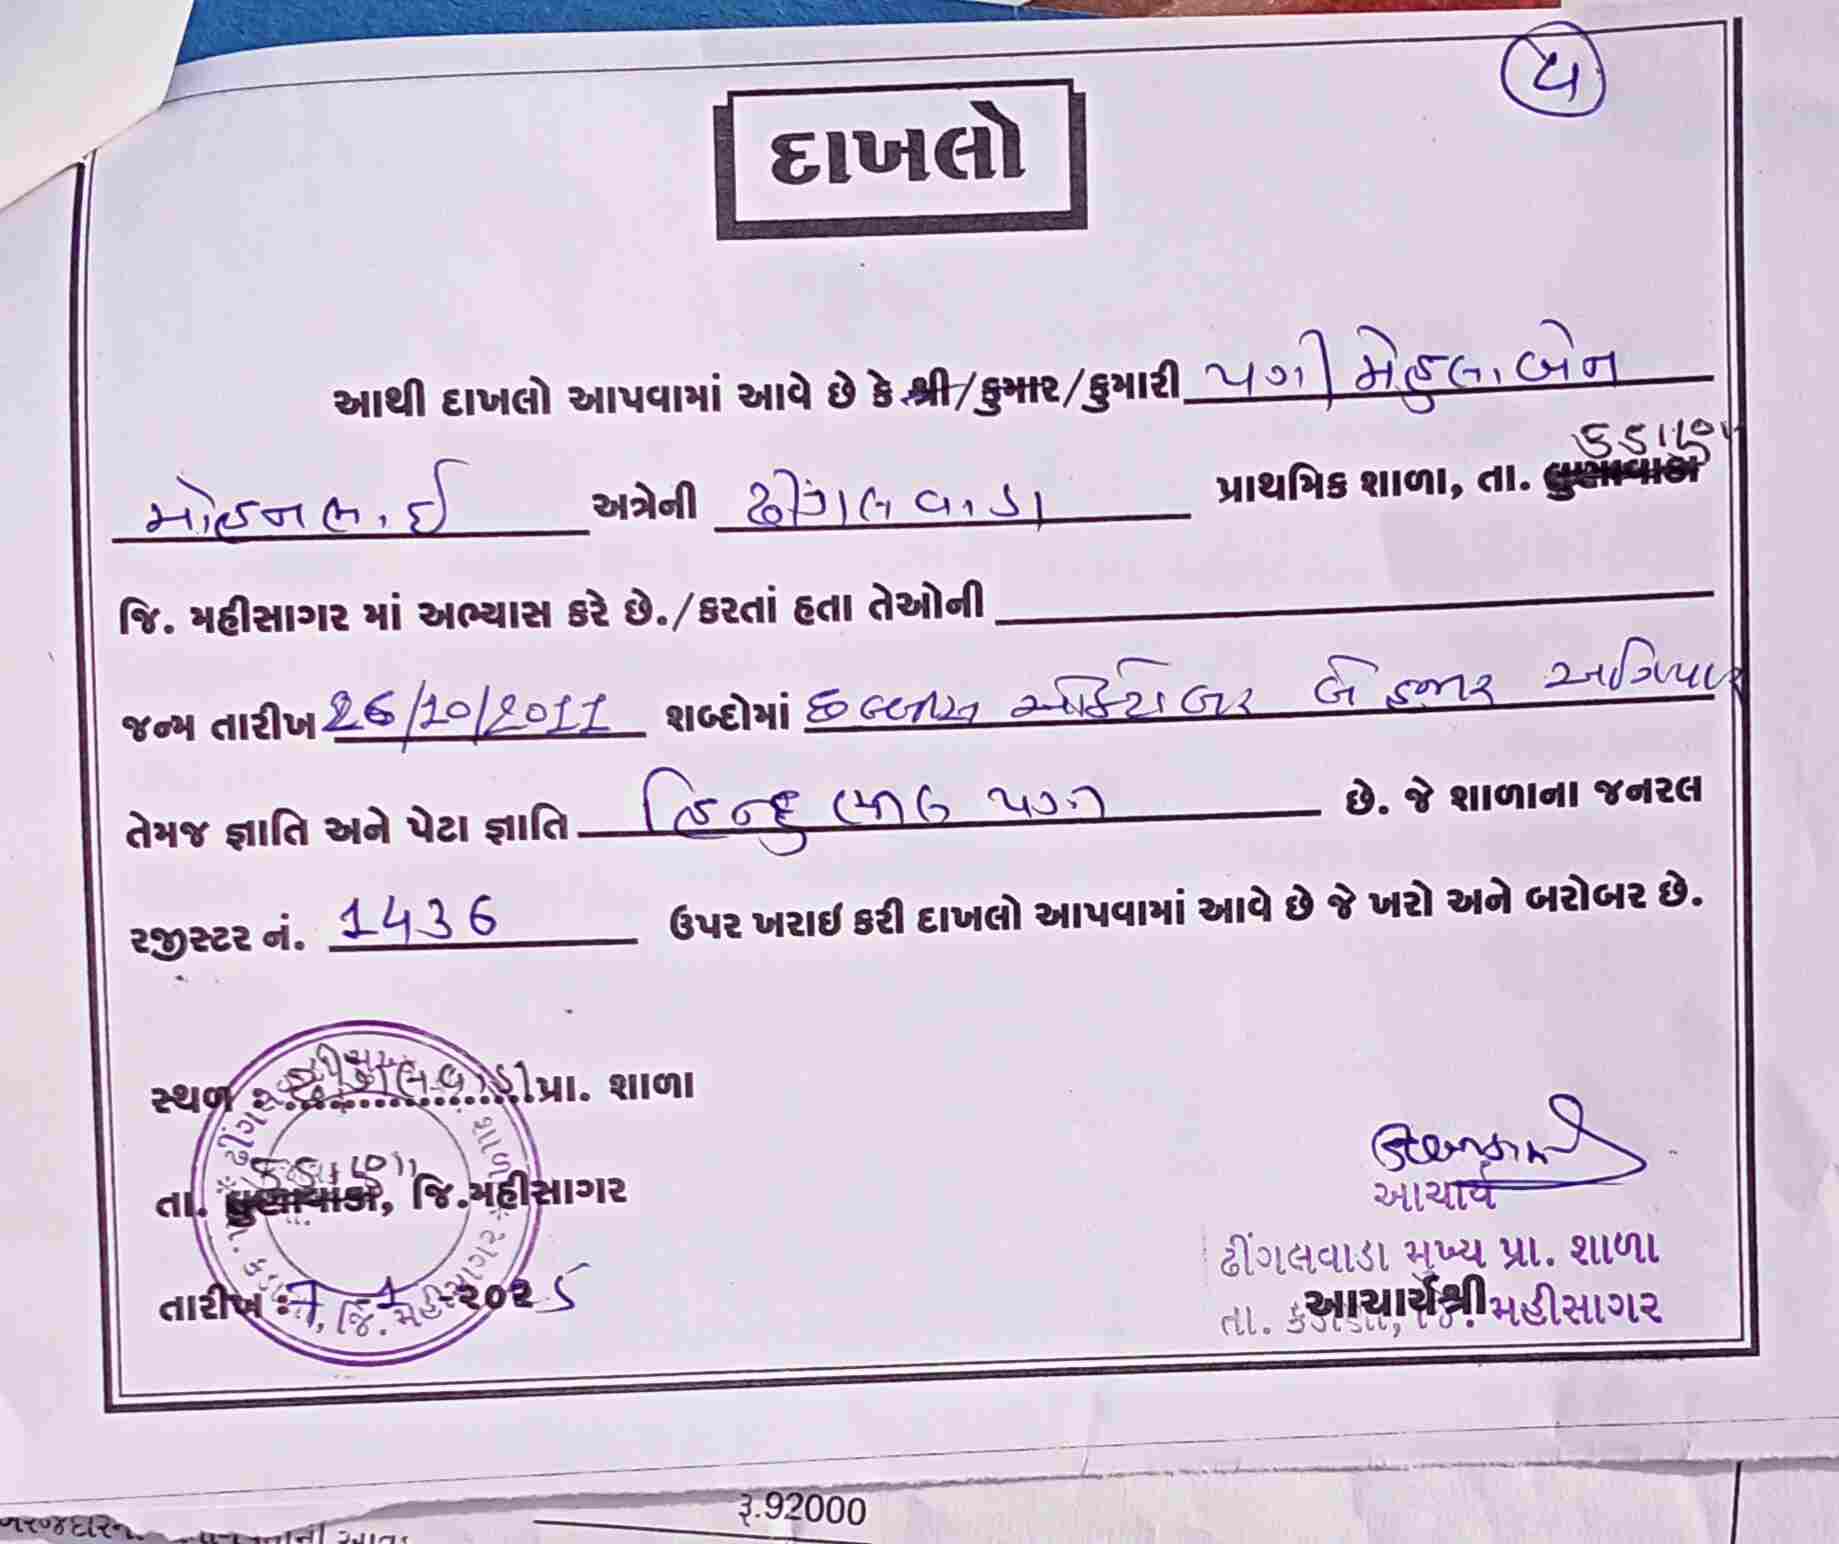 ૫
દાખલો
આથી દાખલો આપવામાં આવે છે કે શ્રી/કુમાર/કુમારી પગી મેહુલાબેન
કડાણા
મોહનભાઈ અત્રેની ઢીંગલવાડા પ્રાથમિક શાળા, તા. લુણાવાડા
જિ. મહીસાગર માં અભ્યાસ કરે છે./કરતાં હતા તેઓની
જન્મ તારીખ 26/10/2011 શબ્દોમાં છવ્વીસ ઓક્ટોબર બે હજાર અગિયાર
તેમજ જ્ઞાતિ અને પેટા જ્ઞાતિ હિન્દુ પગી છે. જે શાળાના જનરલ
રજીસ્ટર નં. 1436 ઉપર ખરાઇ કરી દાખલો આપવામાં આવે છે જે ખરો અને બરોબર છે.
સ્થળ : ઢીંગલવાડા પ્રા. શાળા
કડાણા
તા. લુણાવાડા, જિ.મહીસાગર
તારીખ : 7-1-૨૦૨5
આચાર્ય
ઢીંગલવાડા મુખ્ય પ્રા. શાળા
આચાર્યશ્રી
તા. કડાણા, જિ. મહીસાગર
રૂ.92000